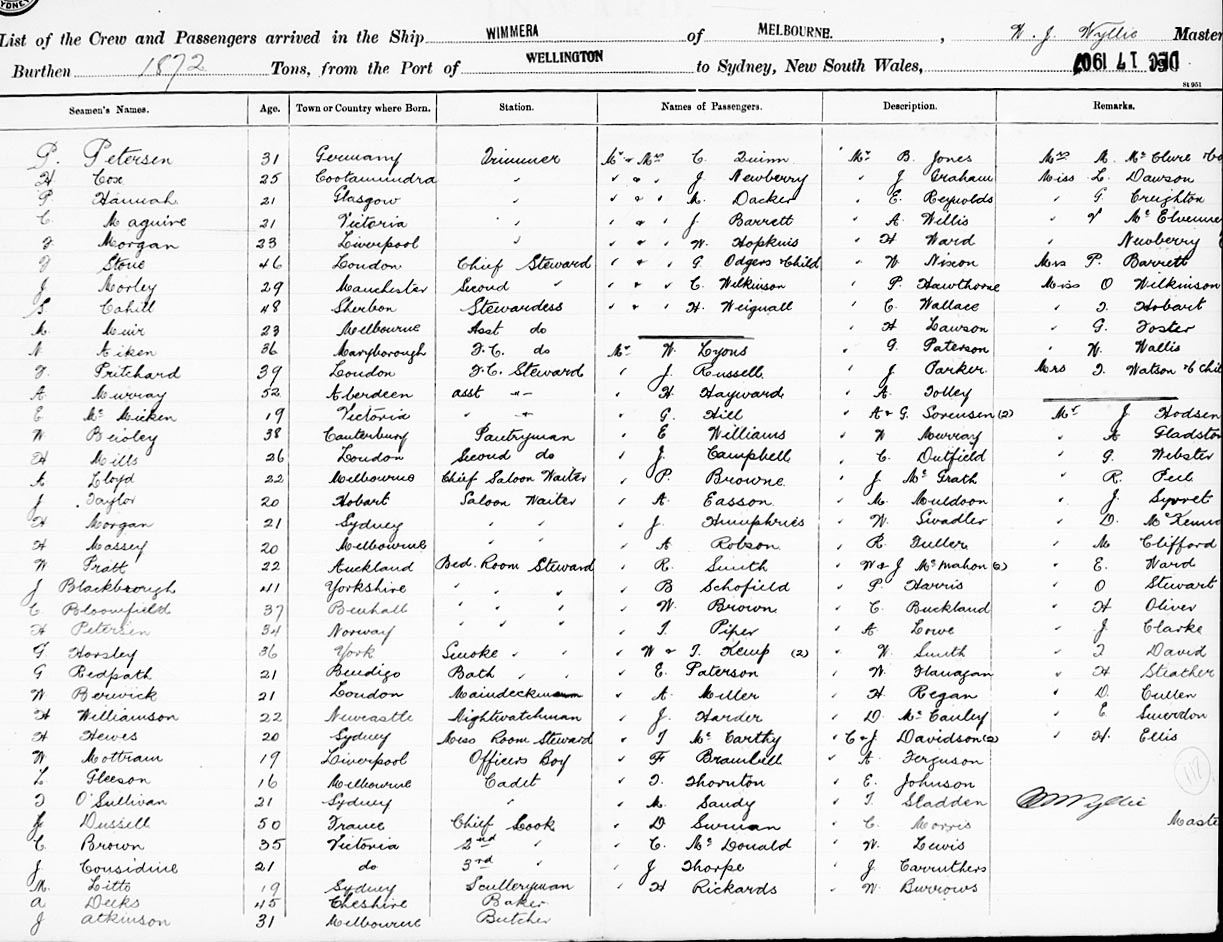 SYDNEY
List of the Crew and Passengers arrived in the Ship WIMMERA of MELBOURNE, W. J. Wyllie Master
Burthen 1872 Tons, from the Port of WELLINGTON to Sydney, New South Wales, DEC 17 1907
St 951
Seamen's Names. Age. Town or Country where Born. Station. Names of Passengers. Description. Remarks.
P. Petersen 31 Germany Trimmer Mr & Mrs C. Quinn Mr B. Jones Mrs M. McClure
H Cox 25 Cootamundra " " " " J Newberry " J Graham Miss L. Dawson
P. Hannah 21 Glasgow " " " " M. Dacker " E. Reynolds " G Creighton
C. Maguire 21 Victoria " " " " J Barrett " A Willis " McElvenne
F Morgan 23 Liverpool " " " " W. Hopkins " H Ward " Newberry
F Stone 46 London Chief Steward " " " G Odgers & Child " W Nixon Mrs P. Barrett
J Morley 29 Manchester Second " " " " C. Wilkinson " P. Hawthorne Miss O Wilkinson
S Cahill 48 Sherbon Stewardess " " " H. Weignall " C. Wallace " T. Hobart
M. Muir 23 Melbourne Asst do " H Lawson " G. Foster
N Aiken 36 Maryborough F.C. do Mr W. Lyons " G. Paterson " W. Wallis
F. Pritchard 39 London F.C. Steward " J Russell " J Parker Mrs T. Watson & Chil
A Murray 52 Aberdeen asst " " H. Hayward " A. Tolley
E McMicken 19 Victoria " " " G. Hill " A & G. Sorensen (2) Mr J Hodsen
W Beisley 38 Canterbury Pantryman " E Williams " W Murray " A Gladsto
H Mills 26 London Second do " J. Campbell " C. Dutfield " G. Webster
A Lloyd 22 Melbourne Chief Saloon Waiter " P. Browne " J McGrath " R. Peel
J Taylor 20 Hobart Saloon Waiter " A. Easson " M. Muldoon " J. Syvret
H Morgan 21 Sydney " " " J. Humphries " W. Swadler " D. McKenn
H Massey 20 Melbourne " " " A Robson " R Fuller " M Clifford
W Pratt 22 Auckland Bed. Room Steward " R. Smith " W & J McMahon (2) " E. Ward
J Blackbrough 41 Yorkshire " " " " B Schofield " P. Harris " O Stewart
C. Bloomfield 37 Benhall " " " " W. Brown " C. Buckland " H Oliver
H Petersen 34 Norway " " " " T. Piper " A. Lowe " J. Clarke
G Horsley 36 York Smoke " " " W & T. Kemp (2) " W. Smith " T David
G Redpath 21 Bendigo Bath " " " E. Paterson " W. Flanagan " H Steather
W Berwick 21 London Maindeckman " A. Miller " H. Regan " D. Cullen
H Williamson 22 Newcastle Nightwatchman " J. Harder " D. McCauley " E Smerdon
H Hewes 20 Sydney Mess Room Steward " T McCarthy " C & J Davidson (2) " H. Ellis
W Mottram 19 Liverpool Officers Boy " F Brambell " A Ferguson
L Gleeson 16 Melbourne Cadet " T. Thornton " E. Johnson
T O'Sullivan 21 Sydney " " M. Sandy " T. Sladden Wyllie
J Dussell 50 France Chief Cook " D Surman " C. Morris Maste
C. Brown 35 Victoria 2nd " " C. McDonald " W. Lewis
J. Considine 21 do 3rd " " J Thorpe " J. Carruthers
M. Litto 19 Sydney Sculleryman " H Rickards " W. Burrows
A Deeks 45 Cheshire Baker
J Atkinson 31 Melbourne Butcher
117